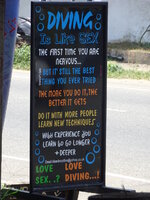 DIVING
Is Like SEX
THE FIRST TIME YOU ARE
NERVOUS...
BUT IT STILL THE BEST
THING YOU EVER TRIED
THE MORE YOU DO IT, THE
BETTER IT GETS
DO IT WITH MORE PEOPLE
LEARN NEW TECHNIQUES
With EXPERIENCE YOU
LEARN to GO LONGER
+ DEEPER
LOVE LOVE
SEX..? DIVING...!